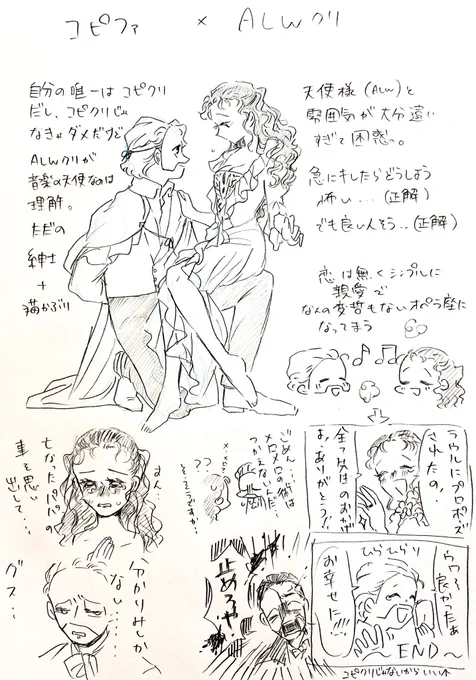 コピファ × ALWクリ
自分の唯一はコピクリ
だし、コピクリじゃ
なきゃダメだけど
ALWクリが
音楽の天使なのは
理解。
ただの
紳士
+
猫かぶり
天使様(ALW)と
雰囲気が大分違い
すぎて困惑っ。
急にキレたらどうしよう
怖い…(正解)
でも良い人そう..(正解)
恋は無くシンプルに
親愛で
なんの変哲もないオペラ座に
なってまう
ラウルにプロポーズ
されたの!
全て先生のおかげ
よ、ありがとう!!
ごめん…
メロメロの術は
つかえないんだ…
メロメロ
??
そ、そうですか?
うん…
亡なったパパの
事を思い
出して…
分かりみしか
ない……
グス…
止めろや
ウウッ良かったぁ
ひらひらり
お幸せに!!!
~END~
コピクリじゃないからいい↑